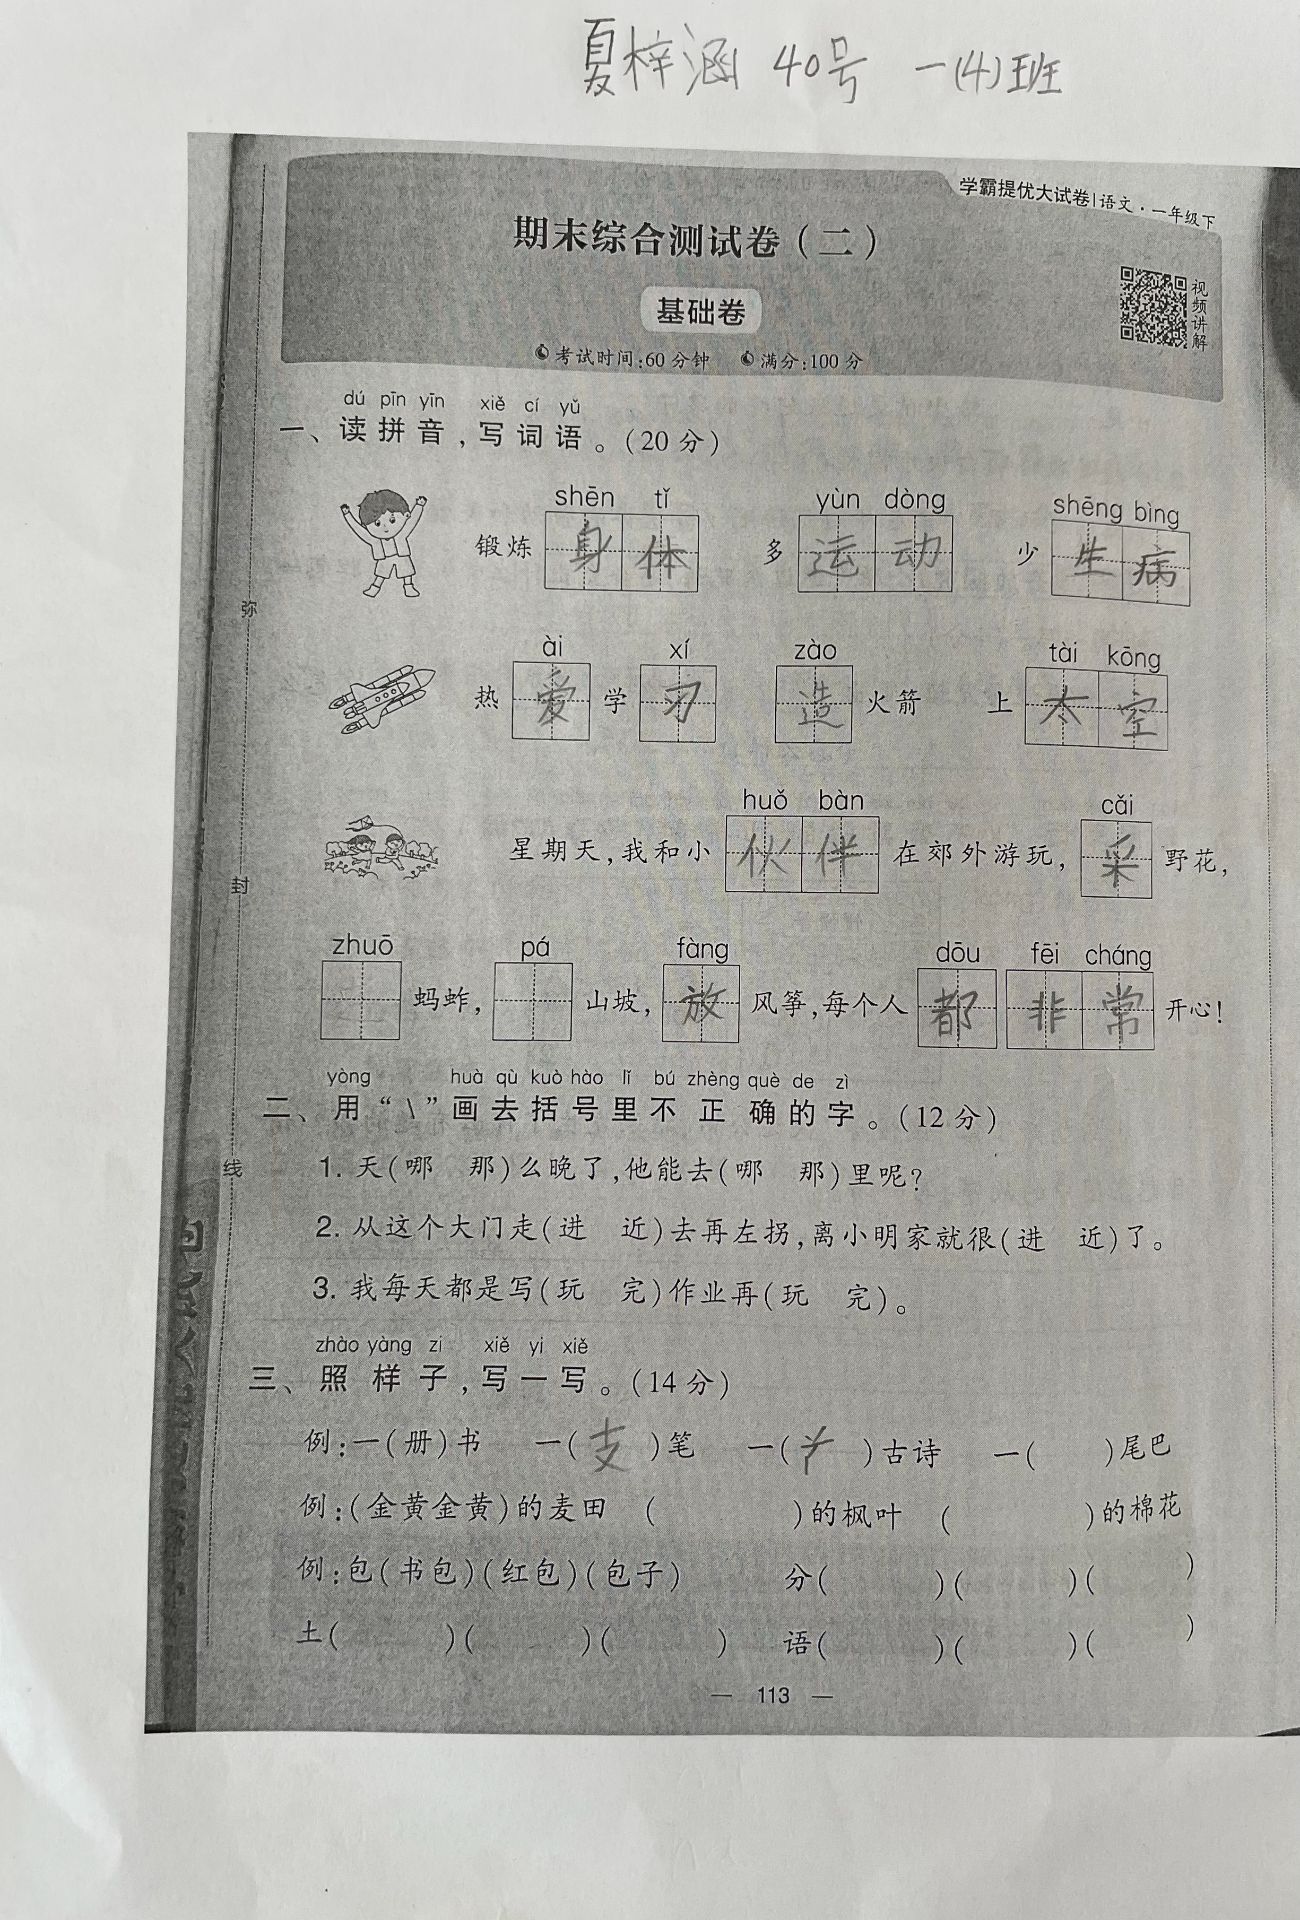 夏梓涵 40号 一(4)班
学霸提优大试卷|语文·一年级下
期末综合测试卷(二)
基础卷
视频讲解
考试时间:60分钟 满分:100分
dú pīn yīn xiě cí yǔ
一、读拼音,写词语。(20分)
shēn tǐ yùn dòng shēng bìng
锻炼 身体 多 运动 少 生病
ài xí zào tài kōng
热 爱 学 习 造 火箭 上 太空
huǒ bàn cǎi
星期天,我和小 伙伴 在郊外游玩, 采 野花,
zhuō pá fàng dōu fēi cháng
蚂蚱, 山坡, 放 风筝,每个人 都 非常 开心!
yòng huà qù kuò hào lǐ bú zhèng què de zì
二、用“\”画去括号里不正确的字。(12分)
1. 天(哪 那)么晚了,他能去(哪 那)里呢?
2. 从这个大门走(进 近)去再左拐,离小明家就很(进 近)了。
3. 我每天都是写(玩 完)作业再(玩 完)。
zhào yàng zi xiě yi xiě
三、照样子,写一写。(14分)
例:一(册)书 一(支)笔 一( )古诗 一( )尾巴
例:(金黄金黄)的麦田 ( )的枫叶 ( )的棉花
例:包(书包)(红包)(包子) 分( )( )( )
土( )( )( ) 语( )( )( )
— 113 —
弥
封
线